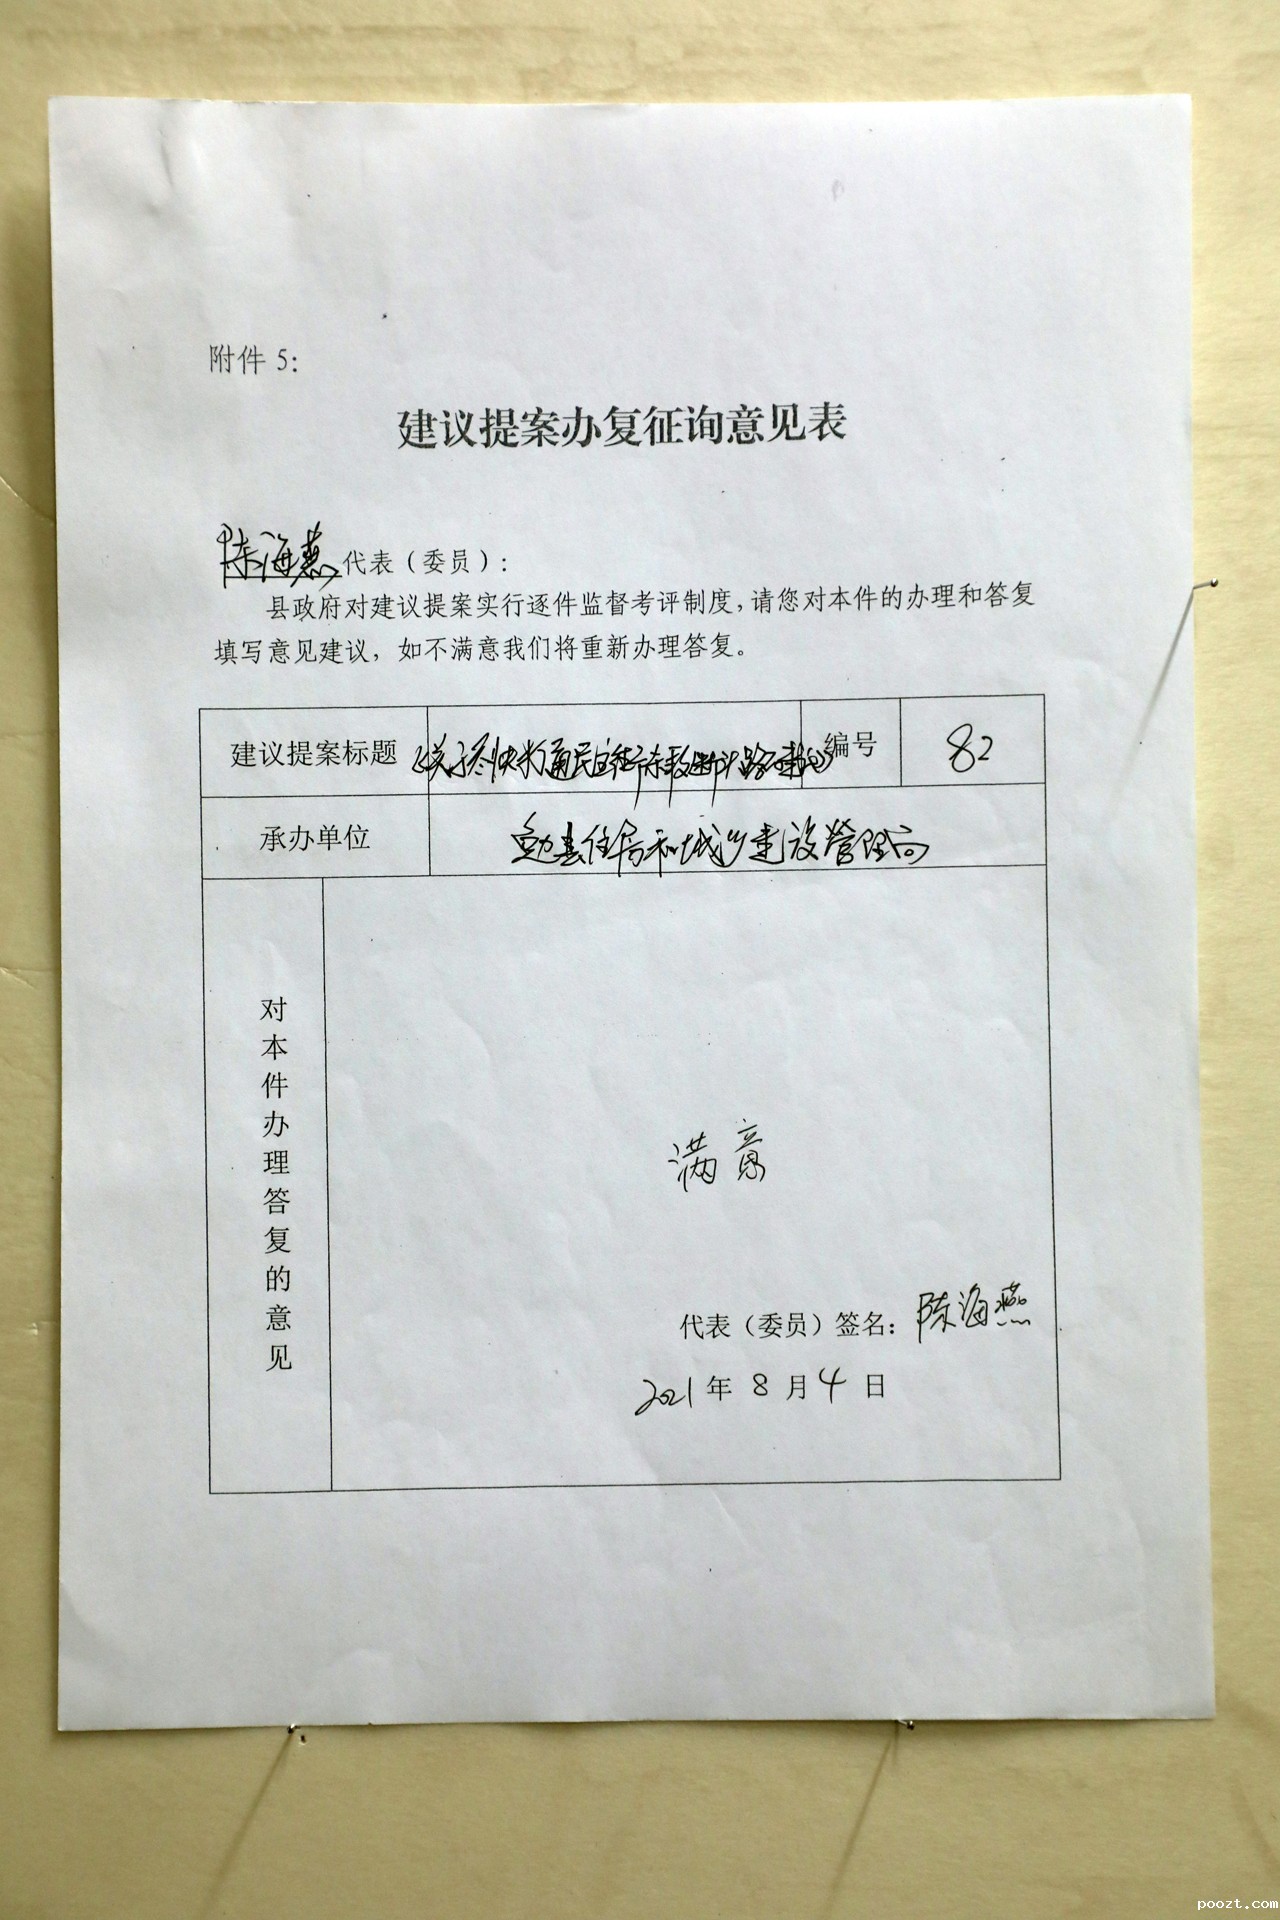 附件 5：
建议提案办复征询意见表
陈海燕代表（委员）：
县政府对建议提案实行逐件监督考评制度，请您对本件的办理和答复
填写意见建议，如不满意我们将重新办理答复。
建议提案标题 《关于尽快打通民主街东段断头路建议》 编号 82
承办单位 勉县住房和城乡建设管理局
对本件办理答复的意见
满意
代表（委员）签名：陈海燕
2021 年 8 月 4 日
poozt.com